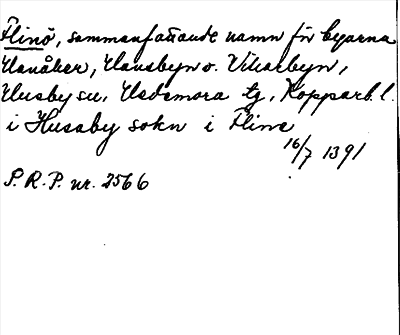 Flinö, sammanfattande namn för byarna
Usnåker, Hansbyn o. Vikarbyn,
Husby sn. Hedemora tg, Kopparb. l.
i Husaby sokn i Fline
16/7 1391
P. R. P. nr. 2566